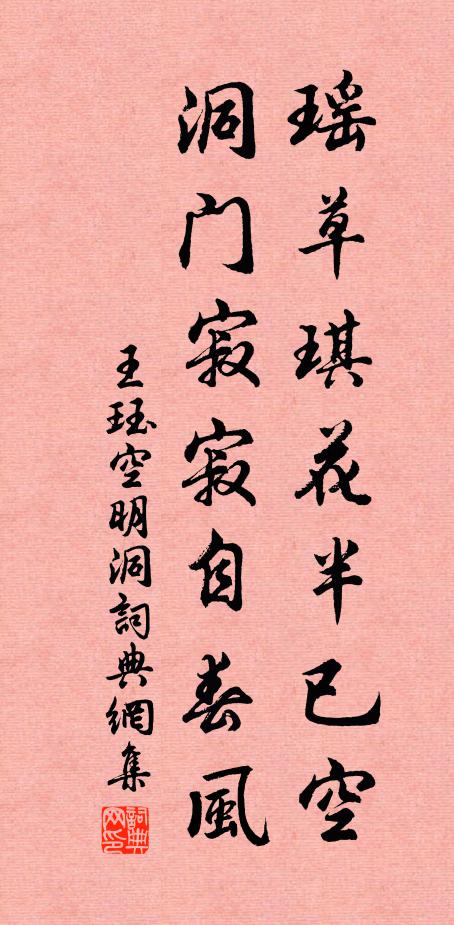 瑶草琪花半已空
洞门寂寂自春風
王珏空明洞詞典網集
詞典网印